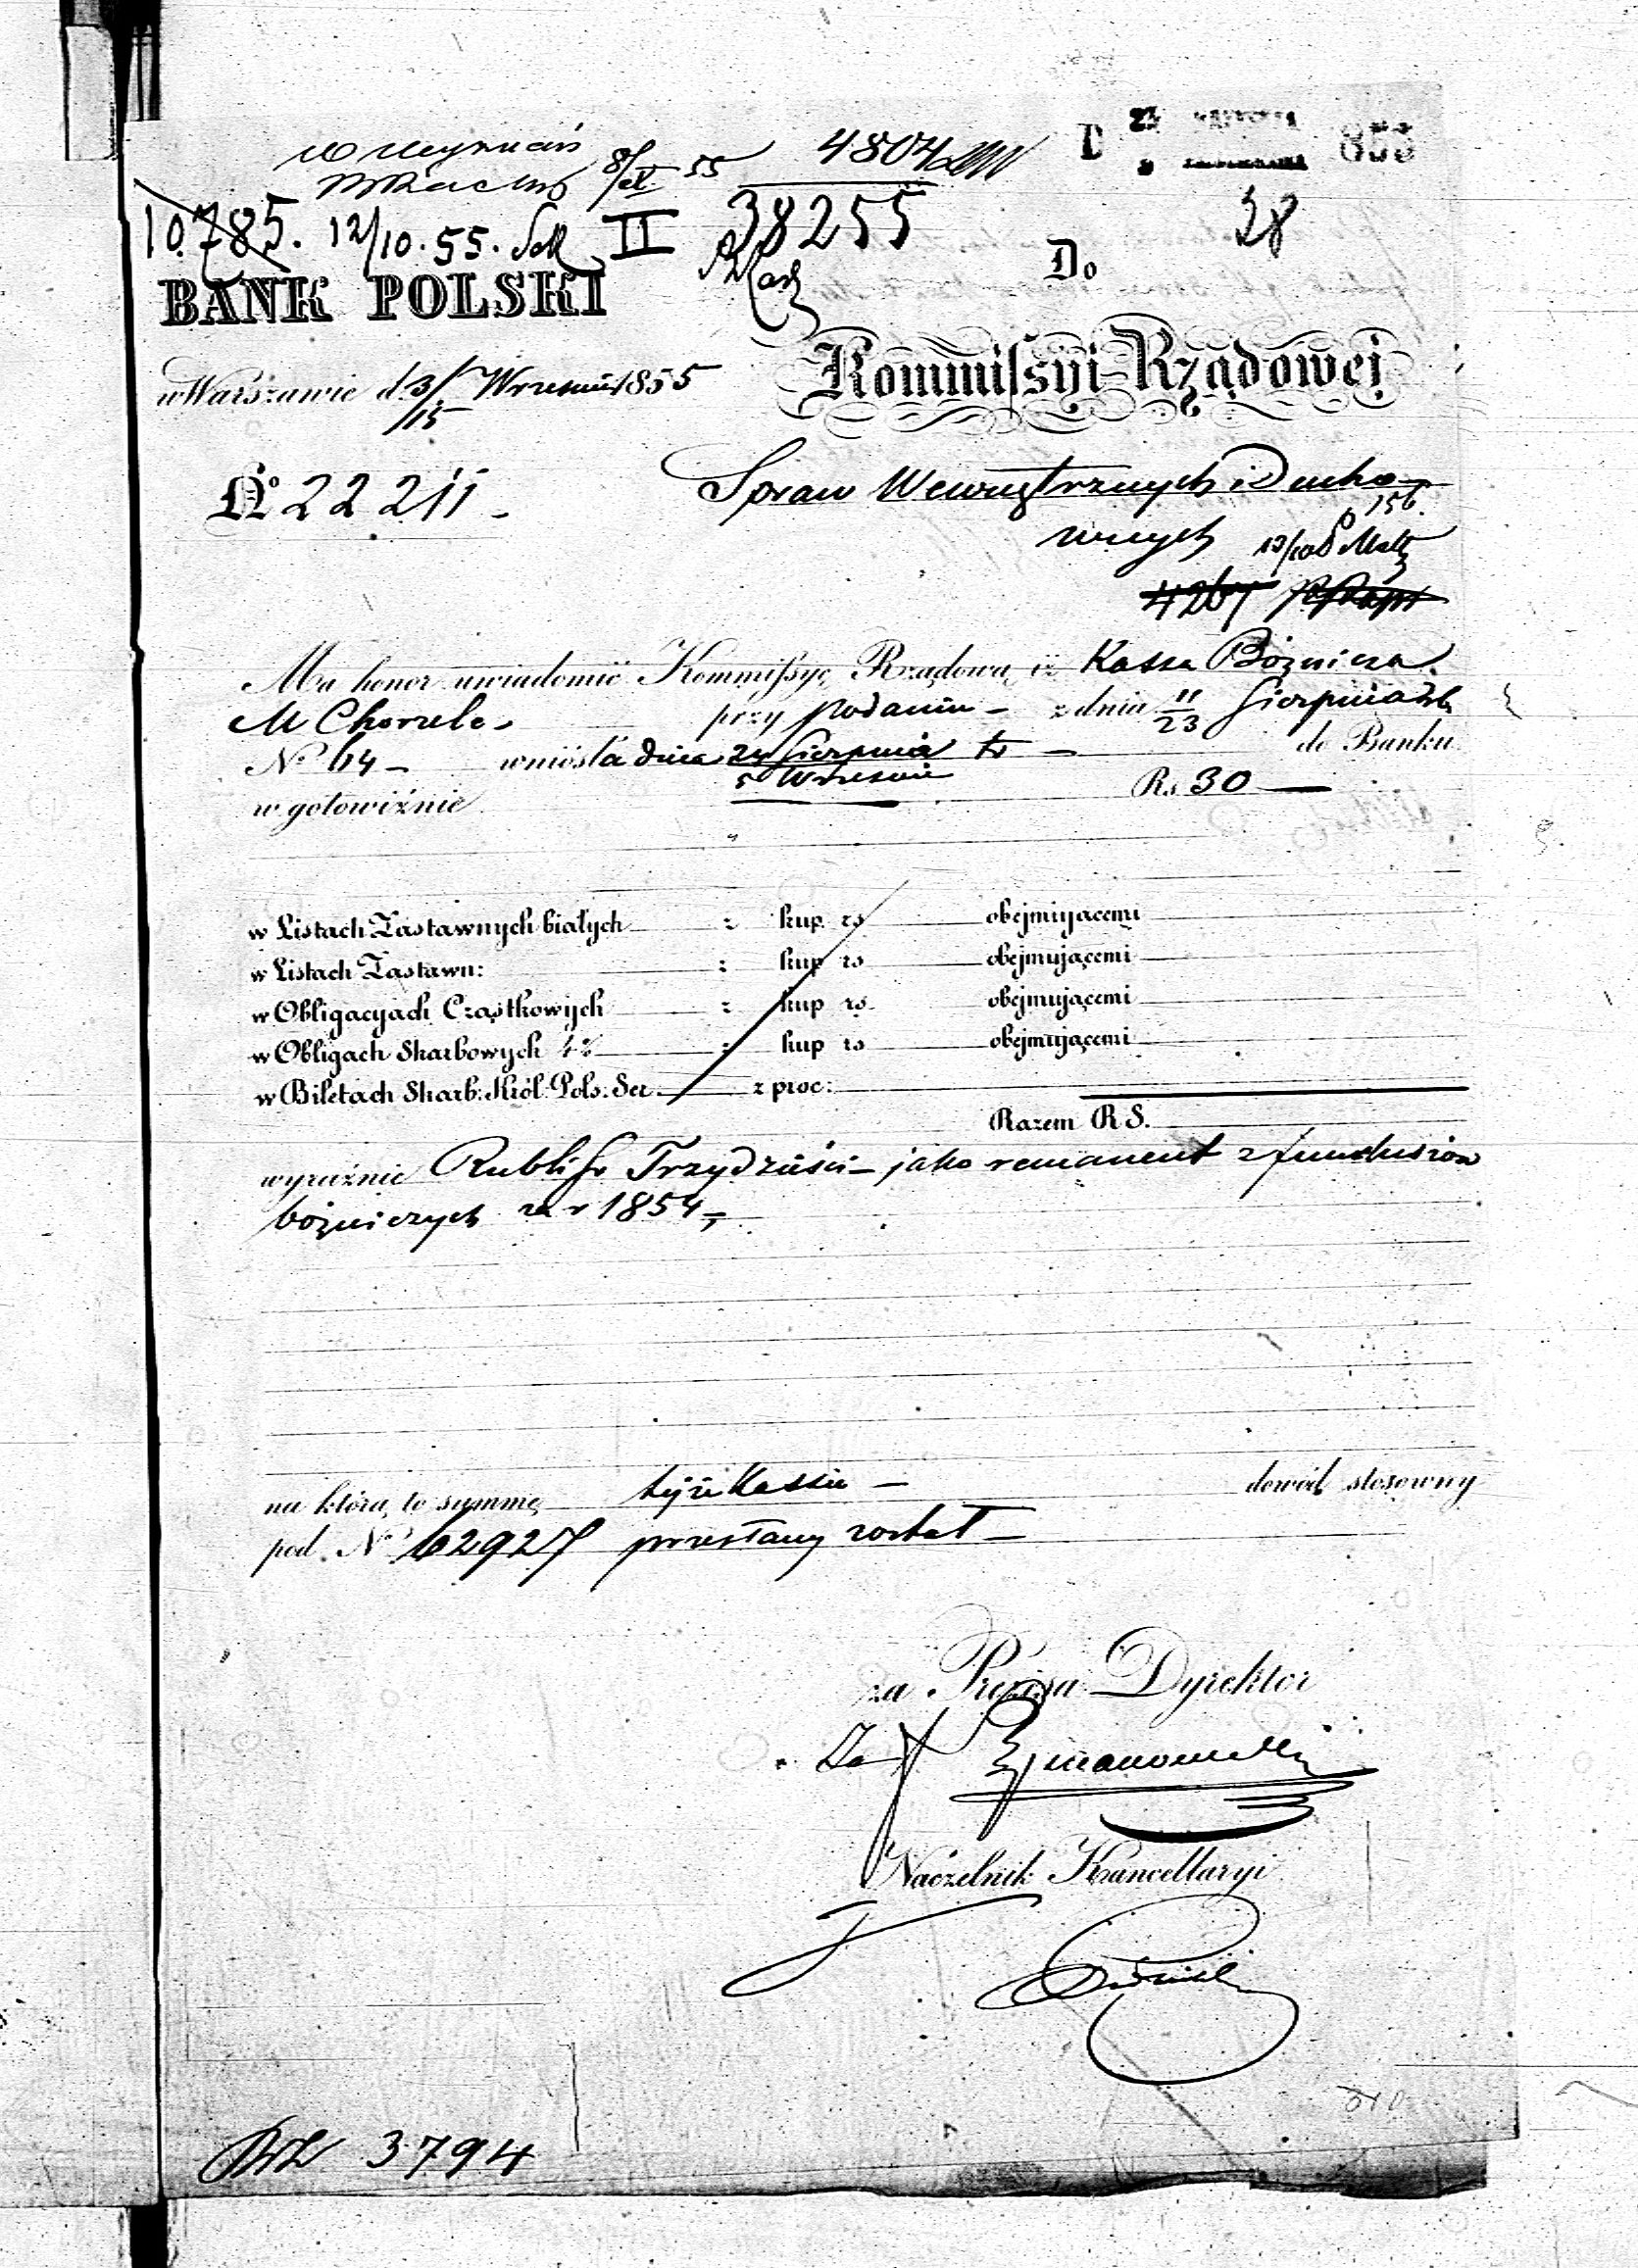 4804
855
10.785. 12/10.55. II 38255
28
BANK POLSKI
Do
Kommissyi Rządowej
w Warszawie d. 3/15 Września 1855
No 22211
Spraw Wewnętrznych i Ducho-
wnych
156.
4267
Ma honor uwiadomić Kommissyę Rządową iż Kassa Bóżnicza
M Chorzele przy podaniu z dnia 11/23 Sierpnia
No 64 wniosła dnia 24 Sierpnia tr do Banku
5 Września
w gotowiźnie Rs 30
w Listach Zastawnych białych : kup. rs obejmującemi
w Listach Zastawn: : kup rs obejmującemi
w Obligacyach Cząstkowych : kup rs. obejmującemi
w Obligach Skarbowych 4% : kup rs obejmującemi
w Biletach Skarb: Król: Pols: Ser. z proc:
Razem R S.
wyraźnie Rubli sr Trzydzieści jako remanent z funduszów
bóżniczych za r 1854,
na którą to summę tejże Kassie dowód stosowny
pod No 62927 przesłany został
za Prezesa Dyrektor
Za
Naczelnik Kancellaryi
3794